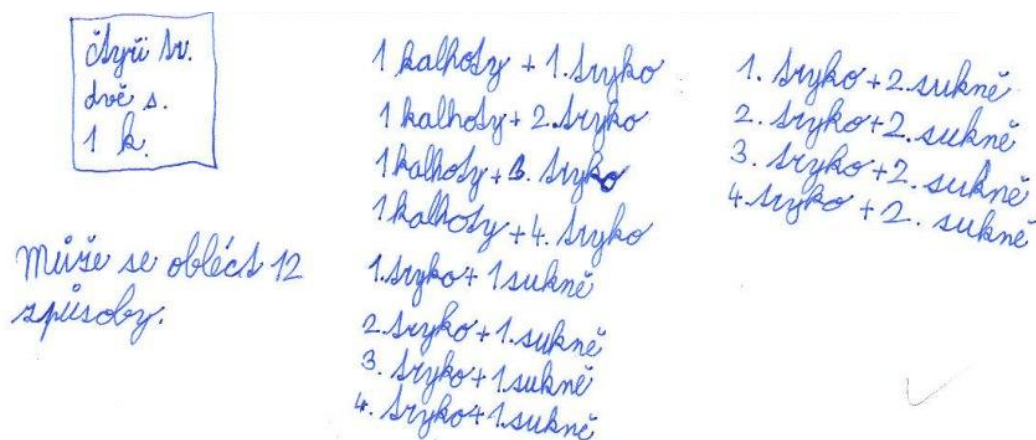 čtyři tr.
dvě s.
1 k.
Může se obléct 12
způsoby.
1 kalhoty + 1. tryko
1 kalhoty + 2. tryko
1 kalhoty + 3. tryko
1 kalhoty + 4. tryko
1. tryko + 1 sukně
2. tryko + 1. sukně
3. tryko + 1 sukně
4. tryko + 1. sukně
1. tryko + 2. sukně
2. tryko + 2. sukně
3. tryko + 2. sukně
4. tryko + 2. sukně